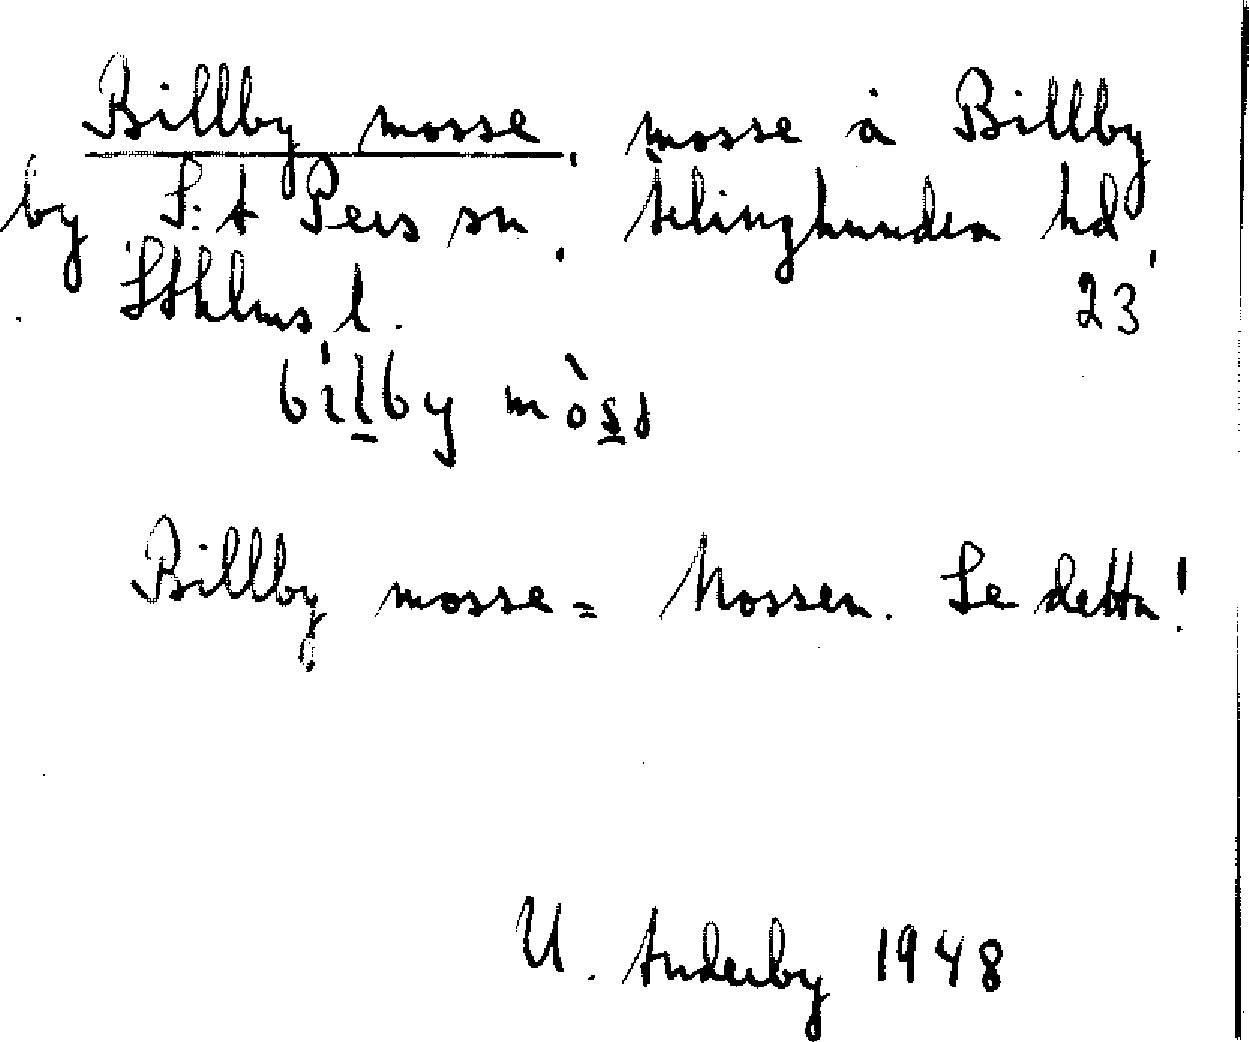 Billby mosse, mosse å Billby
by S:t Pers sn. Ärlinghundra hd,
Sthlms l. 23
bìlby mòsə
Billby mosse = Mossen. Se detta!
U. Anderby 1948